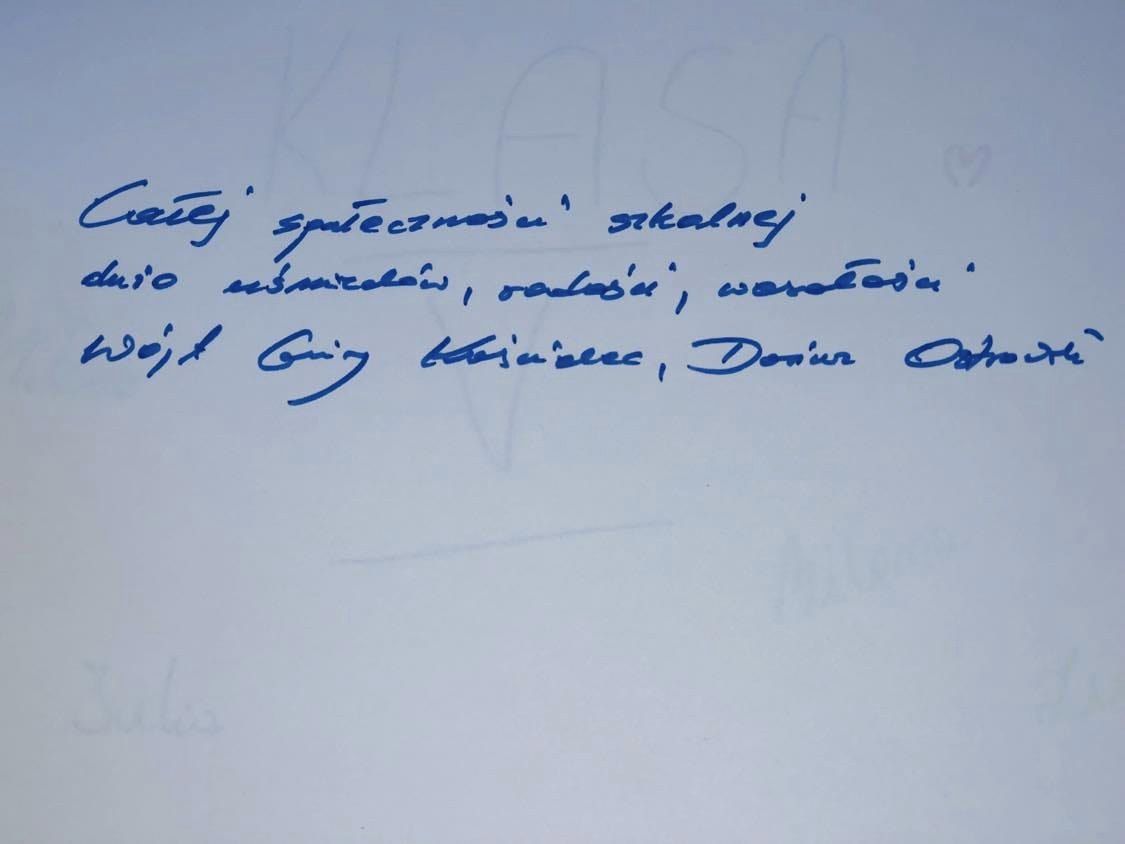 KLASA
Całej społeczności szkolnej
dnio uśmiechów, radości, wesołości
Wójt Gminy Kościelec, Dariusz Ostrowski
V
Milena
Julia